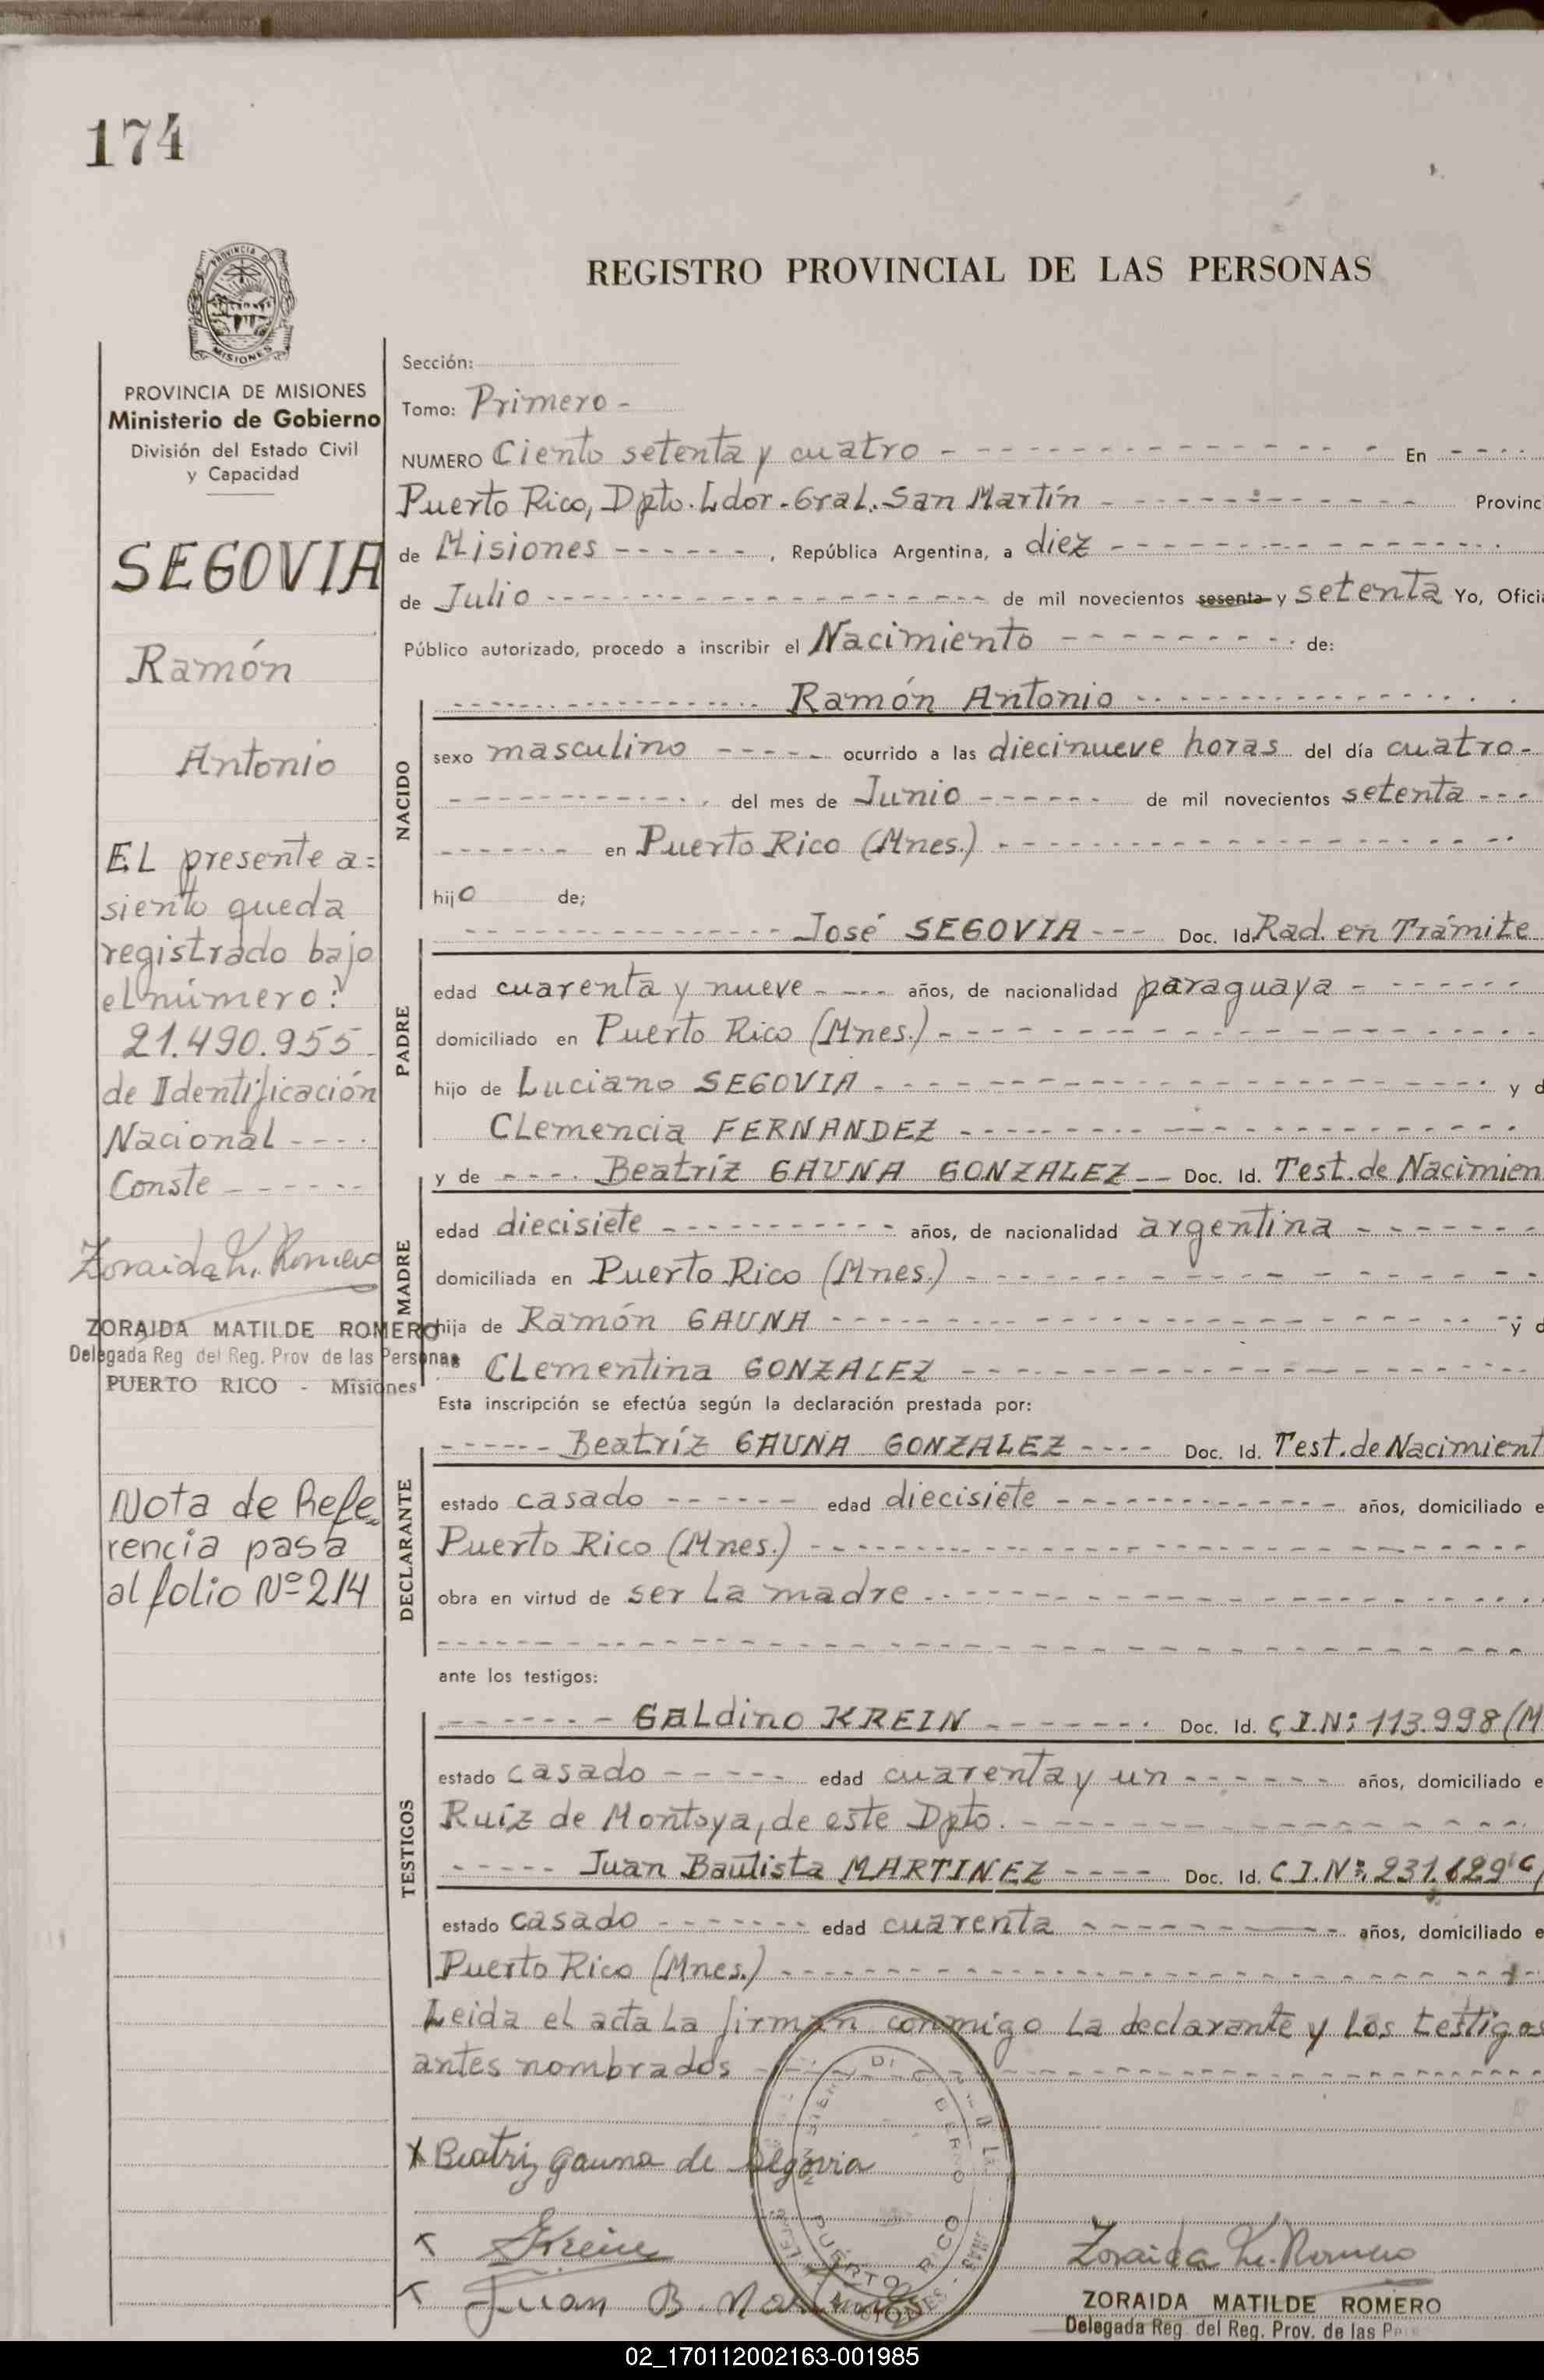 174
REGISTRO PROVINCIAL DE LAS PERSONAS
PROVINCIA DE MISIONES
Ministerio de Gobierno
División del Estado Civil
y Capacidad
SEGOVIA
Ramón
Antonio
EL presente a=
siento queda
registrado bajo
el número:
21.490.955
de Identificación
Nacional ----
Conste ------
Zoraida M. Romero
ZORAIDA MATILDE ROMERO
Delegada Reg del Reg. Prov de las Personas
PUERTO RICO - Misiones
Nota de Refe
rencia pasa
al folio Nº 214
Sección:
Tomo: Primero -
NUMERO Ciento setenta y cuatro - En -
Puerto Rico, Dpto. Ldor. Gral. San Martín - Provinc
de Misiones - , República Argentina, a diez -
de Julio - de mil novecientos sesenta y setenta Yo, Ofici
Público autorizado, procedo a inscribir el Nacimiento - de:
NACIDO
Ramón Antonio
sexo masculino - ocurrido a las diecinueve horas del día cuatro -
del mes de Junio - de mil novecientos setenta -
en Puerto Rico (Mnes.) -
hijo de;
PADRE
José SEGOVIA --- Doc. Id. Rad. en Trámite
edad cuarenta y nueve - años, de nacionalidad paraguaya -
domiciliado en Puerto Rico (Mnes.) -
hijo de Luciano SEGOVIA - y d
CLemencia FERNANDEZ -
MADRE
y de - Beatríz GAUNA GONZALEZ -- Doc. Id. Test. de Nacimien
edad diecisiete - años, de nacionalidad argentina -
domiciliada en Puerto Rico (Mnes.) -
hija de Ramón GAUNA - y d
CLementina GONZALEZ -
Esta inscripción se efectúa según la declaración prestada por:
DECLARANTE
Beatríz GAUNA GONZALEZ ---- Doc. Id. Test. de Nacimient
estado casado - edad diecisiete - años, domiciliado e
Puerto Rico (Mnes.) -
obra en virtud de ser La madre -
ante los testigos:
TESTIGOS
GALdino KREIN - Doc. Id. C.I.Nº: 113.998 (M
estado casado - edad cuarenta y un - años, domiciliado e
Ruíz de Montoya, de este Dpto. -
Juan Bautista MARTINEZ ---- Doc. Id. C.I.Nº: 231.629
estado casado - edad cuarenta - años, domiciliado e
Puerto Rico (Mnes.) -
Leida el acta La firman conmigo La declarante y Los testigos
antes nombrados -
x Beatriz Gauna de Segovia
GKrein
Juan B. Martinez
PUERTO RICO
Zoraida M. Romero
ZORAIDA MATILDE ROMERO
Delegada Reg. del Reg. Prov. de las Pe
02_170112002163-001985